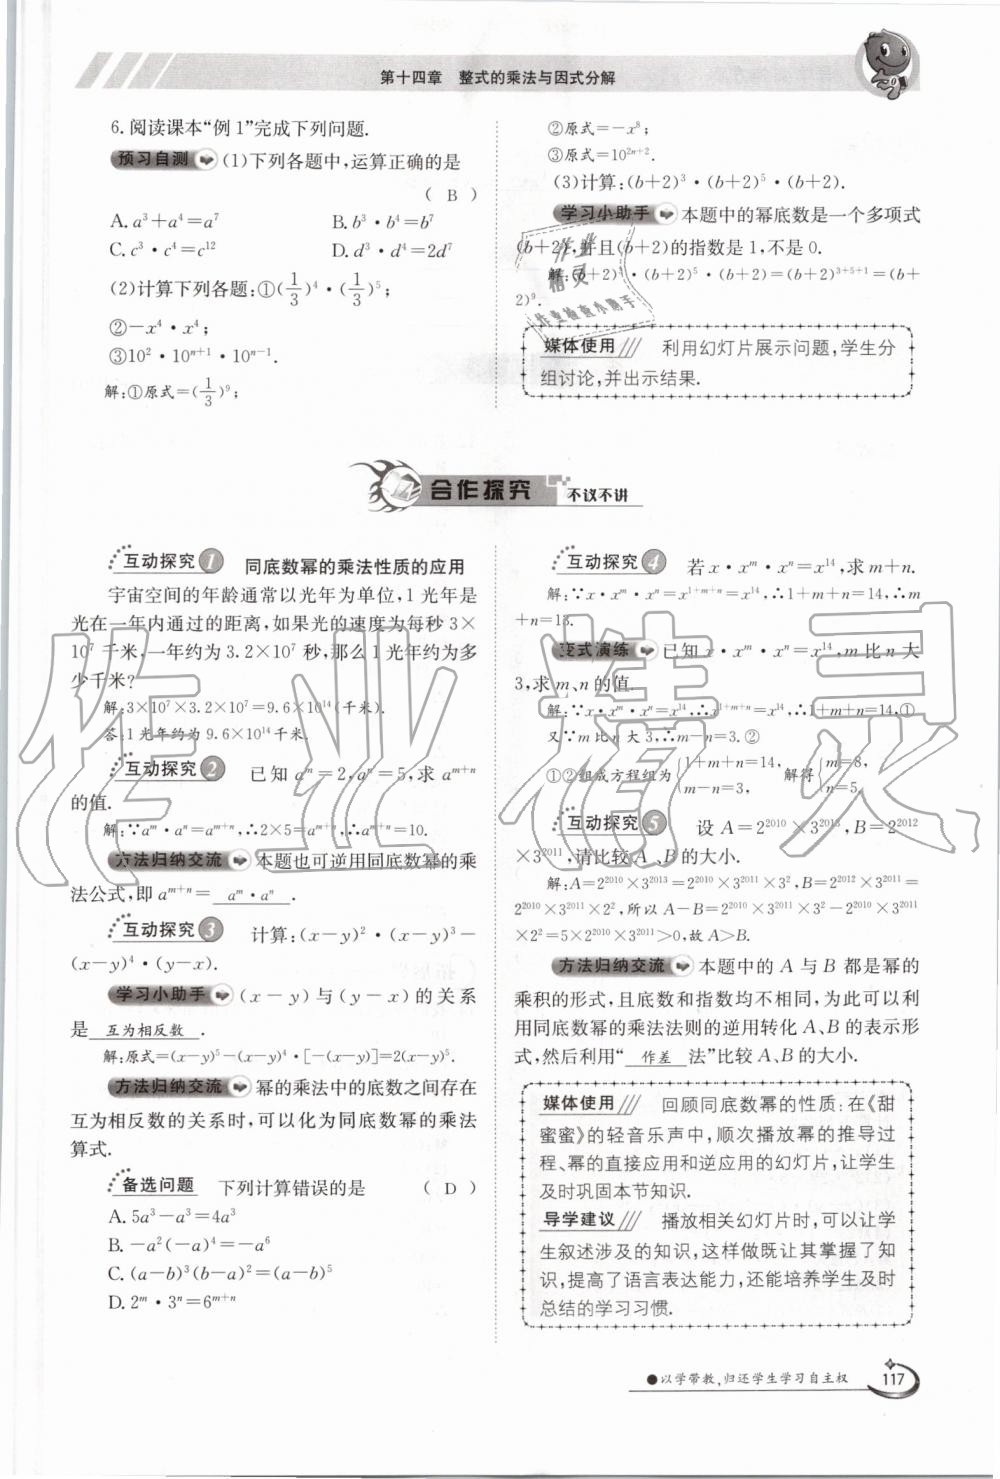 第十四章 整式的乘法与因式分解
6.阅读课本“例1”完成下列问题.
预习自测 (1)下列各题中,运算正确的是
( B )
A.a³+a⁴=a⁷ B.b³·b⁴=b⁷
C.c³·c⁴=c¹² D.d³·d⁴=2d⁷
(2)计算下列各题:①(1/3)⁴·(1/3)⁵;
②-x⁴·x⁴;
③10²·10ⁿ⁺¹·10ⁿ⁻¹.
解:①原式=(1/3)⁹;
②原式=-x⁸;
③原式=10²ⁿ⁺².
(3)计算:(b+2)³·(b+2)⁵·(b+2).
学习小助手 本题中的幂底数是一个多项式
(b+2),并且(b+2)的指数是1,不是0.
解:(b+2)³·(b+2)⁵·(b+2)=(b+2)³⁺⁵⁺¹=(b+
2)⁹.
作业
精灵
作业检查小助手
媒体使用 利用幻灯片展示问题,学生分
组讨论,并出示结果.
合作探究 不议不讲
互动探究1 同底数幂的乘法性质的应用
宇宙空间的年龄通常以光年为单位,1光年是
光在一年内通过的距离,如果光的速度为每秒3×
10⁷千米,一年约为3.2×10⁷秒,那么1光年约为多
少千米?
解:3×10⁷×3.2×10⁷=9.6×10¹⁴(千米).
答:1光年约为9.6×10¹⁴千米.
互动探究2 已知aᵐ=2,aⁿ=5,求aᵐ⁺ⁿ
的值.
解:∵aᵐ·aⁿ=aᵐ⁺ⁿ,∴2×5=aᵐ⁺ⁿ,∴aᵐ⁺ⁿ=10.
方法归纳交流 本题也可逆用同底数幂的乘
法公式,即aᵐ⁺ⁿ= aᵐ·aⁿ .
互动探究3 计算:(x-y)²·(x-y)³-
(x-y)⁴·(y-x).
学习小助手 (x-y)与(y-x)的关系
是 互为相反数 .
解:原式=(x-y)⁵-(x-y)⁴·[-(x-y)]=2(x-y)⁵.
方法归纳交流 幂的乘法中的底数之间存在
互为相反数的关系时,可以化为同底数幂的乘法
算式.
备选问题 下列计算错误的是 ( D )
A.5a³-a³=4a³
B.-a²(-a)⁴=-a⁶
C.(a-b)³(b-a)²=(a-b)⁵
D.2ᵐ·3ⁿ=6ᵐ⁺ⁿ
互动探究4 若x·xᵐ·xⁿ=x¹⁴,求m+n.
解:∵x·xᵐ·xⁿ=x¹⁺ᵐ⁺ⁿ=x¹⁴,∴1+m+n=14,∴m
+n=13.
变式演练 已知x·xᵐ·xⁿ=x¹⁴,m比n大
3,求m、n的值.
解:∵x·xᵐ·xⁿ=x¹⁴,∴x¹⁺ᵐ⁺ⁿ=x¹⁴,∴1+m+n=14,①
又∵m比n大3,∴m-n=3.②
①②组成方程组为{1+m+n=14, m-n=3, 解得{m=8, n=5.
互动探究5 设A=2²⁰¹⁰×3²⁰¹³,B=2²⁰¹²
×3²⁰¹¹,请比较A、B的大小.
解:A=2²⁰¹⁰×3²⁰¹³=2²⁰¹⁰×3²⁰¹¹×3²,B=2²⁰¹²×3²⁰¹¹=
2²⁰¹⁰×3²⁰¹¹×2²,所以A-B=2²⁰¹⁰×3²⁰¹¹×3²-2²⁰¹⁰×3²⁰¹¹
×2²=5×2²⁰¹⁰×3²⁰¹¹>0,故A>B.
方法归纳交流 本题中的A与B都是幂的
乘积的形式,且底数和指数均不相同,为此可以利
用同底数幂的乘法法则的逆用转化A、B的表示形
式,然后利用“ 作差 法”比较A、B的大小.
媒体使用 回顾同底数幂的性质:在《甜
蜜蜜》的轻音乐声中,顺次播放幂的推导过
程、幂的直接应用和逆应用的幻灯片,让学生
及时巩固本节知识.
导学建议 播放相关幻灯片时,可以让学
生叙述涉及的知识,这样做既让其掌握了知
识,提高了语言表达能力,还能培养学生及时
总结的学习习惯.
作业精灵
●以学带教,归还学生学习自主权 117